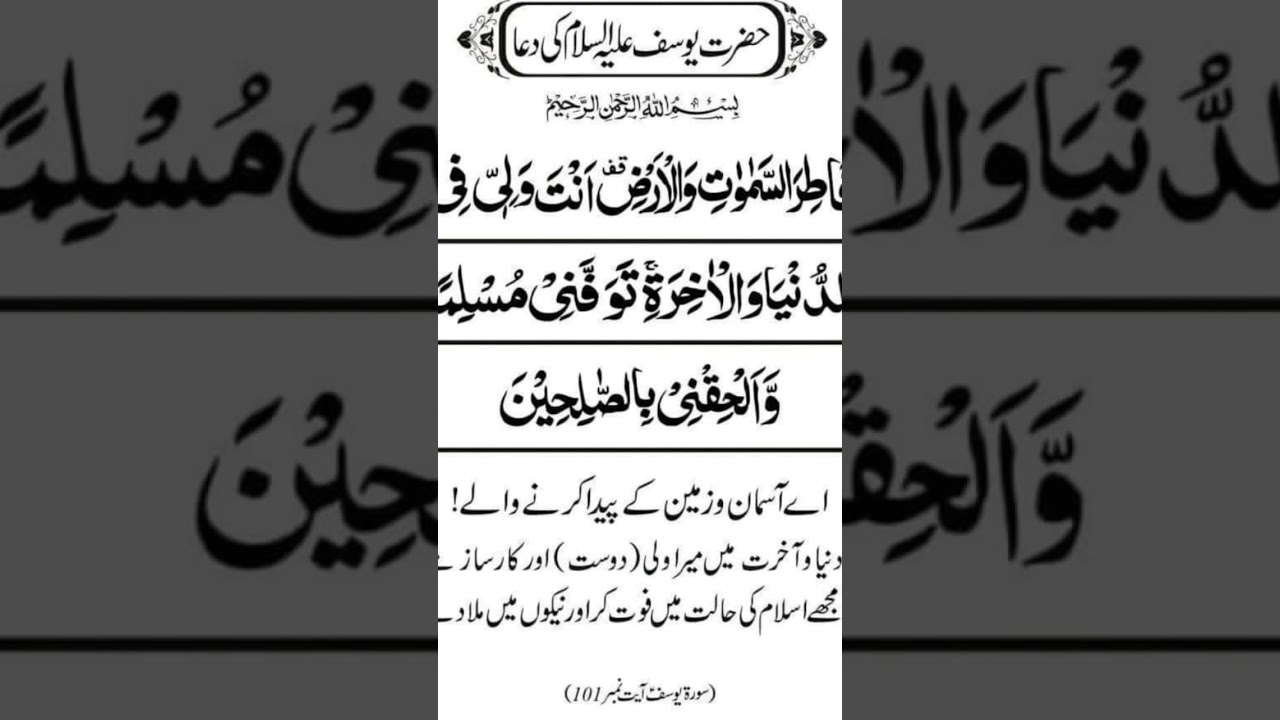 حضرت یوسف علیہ السلام کی دعا
بِسْمِ اللهِ الرَّحْمٰنِ الرَّحِيْمِ
فَاطِرَ السَّمٰوٰتِ وَالْاَرْضِ ۟قف اَنْتَ وَلِیّٖ فِی
لدُّنْيَا وَالْاٰخِرَةِ ۚ تَوَفَّنِیْ مُسْلِمًا
وَّاَلْحِقْنِیْ بِالصّٰلِحِيْنَ
اے آسمان و زمین کے پیدا کرنے والے!
دنیا و آخرت میں میرا ولی (دوست) اور کارساز ہے
مجھے اسلام کی حالت میں فوت کر اور نیکوں میں ملا دے
(سورۃ یوسفؑ آیت نمبر 101)